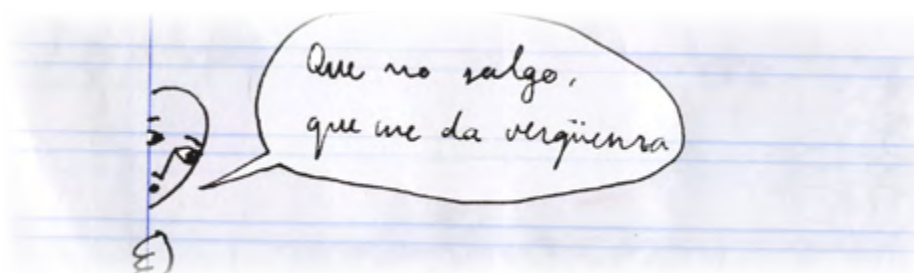 Que no salgo,
que me da vergüenza